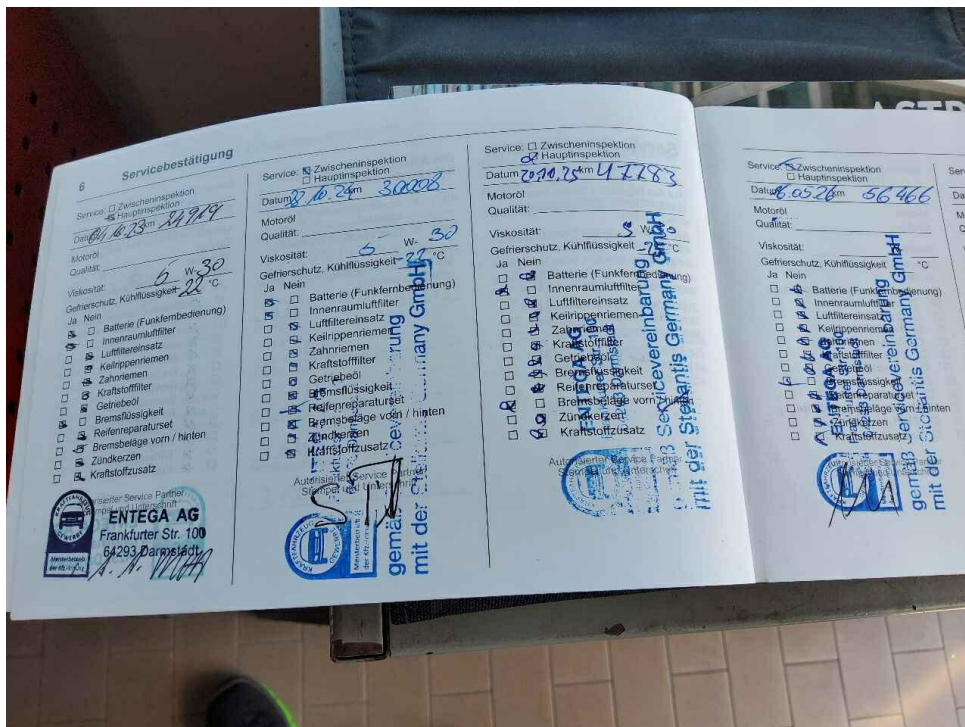 6 Servicebestätigung
Service: ☐ Zwischeninspektion
☒ Hauptinspektion
Datum 04.10.23 km 21919
Motoröl
Qualität:
Viskosität: 5 W- 30
Gefrierschutz, Kühlflüssigkeit -22 °C
Ja Nein
Batterie (Funkfernbedienung)
Innenraumluftfilter
Luftfiltereinsatz
Keilrippenriemen
Zahnriemen
Kraftstofffilter
Getriebeöl
Bremsflüssigkeit
Reifenreparaturset
Bremsbeläge vorn / hinten
Zündkerzen
Kraftstoffzusatz
Autorisierter Service Partner
Stempel und Unterschrift
KRAFTFAHRZEUG GEWERBE
Meisterbetrieb
der Kfz-Innung
ENTEGA AG
Frankfurter Str. 100
64293 Darmstadt
Service: ☒ Zwischeninspektion
☐ Hauptinspektion
Datum 10.24 km 30008
Motoröl
Qualität:
Viskosität: 5 W- 30
Gefrierschutz, Kühlflüssigkeit -22 °C
Ja Nein
Batterie (Funkfernbedienung)
Innenraumluftfilter
Luftfiltereinsatz
Keilrippenriemen
Zahnriemen
Kraftstofffilter
Getriebeöl
Bremsflüssigkeit
Reifenreparaturset
Bremsbeläge vorn / hinten
Zündkerzen
Kraftstoffzusatz
Autorisierter Service Partner
Stempel und Unterschrift
KRAFTFAHRZEUG GEWERBE
Meisterbetrieb
der Kfz-Innung
gemäß Servicevereinbarung
mit der Stellantis Germany GmbH
Service: ☐ Zwischeninspektion
☒ Hauptinspektion
Datum 20.10.25 km 47783
Motoröl
Qualität:
Viskosität: W-
Gefrierschutz, Kühlflüssigkeit °C
Ja Nein
Batterie (Funkfernbedienung)
Innenraumluftfilter
Luftfiltereinsatz
Keilrippenriemen
Zahnriemen
Kraftstofffilter
Getriebeöl
Bremsflüssigkeit
Reifenreparaturset
Bremsbeläge vorn / hinten
Zündkerzen
Kraftstoffzusatz
Autorisierter Service Partner
Stempel und Unterschrift
ENTEGA AG
gemäß Servicevereinbarung
mit der Stellantis Germany GmbH
Service: ☒ Zwischeninspektion
☐ Hauptinspektion
Datum 05 26 km 56466
Motoröl
Qualität:
Viskosität:
Gefrierschutz, Kühlflüssigkeit °C
Ja Nein
Batterie (Funkfernbedienung)
Innenraumluftfilter
Luftfiltereinsatz
Keilrippenriemen
Zahnriemen
Kraftstofffilter
Getriebeöl
Bremsflüssigkeit
Reifenreparaturset
Bremsbeläge vorn / hinten
Zündkerzen
Kraftstoffzusatz
ENTEGA AG
gemäß Servicevereinbarung
mit der Stellantis Germany GmbH